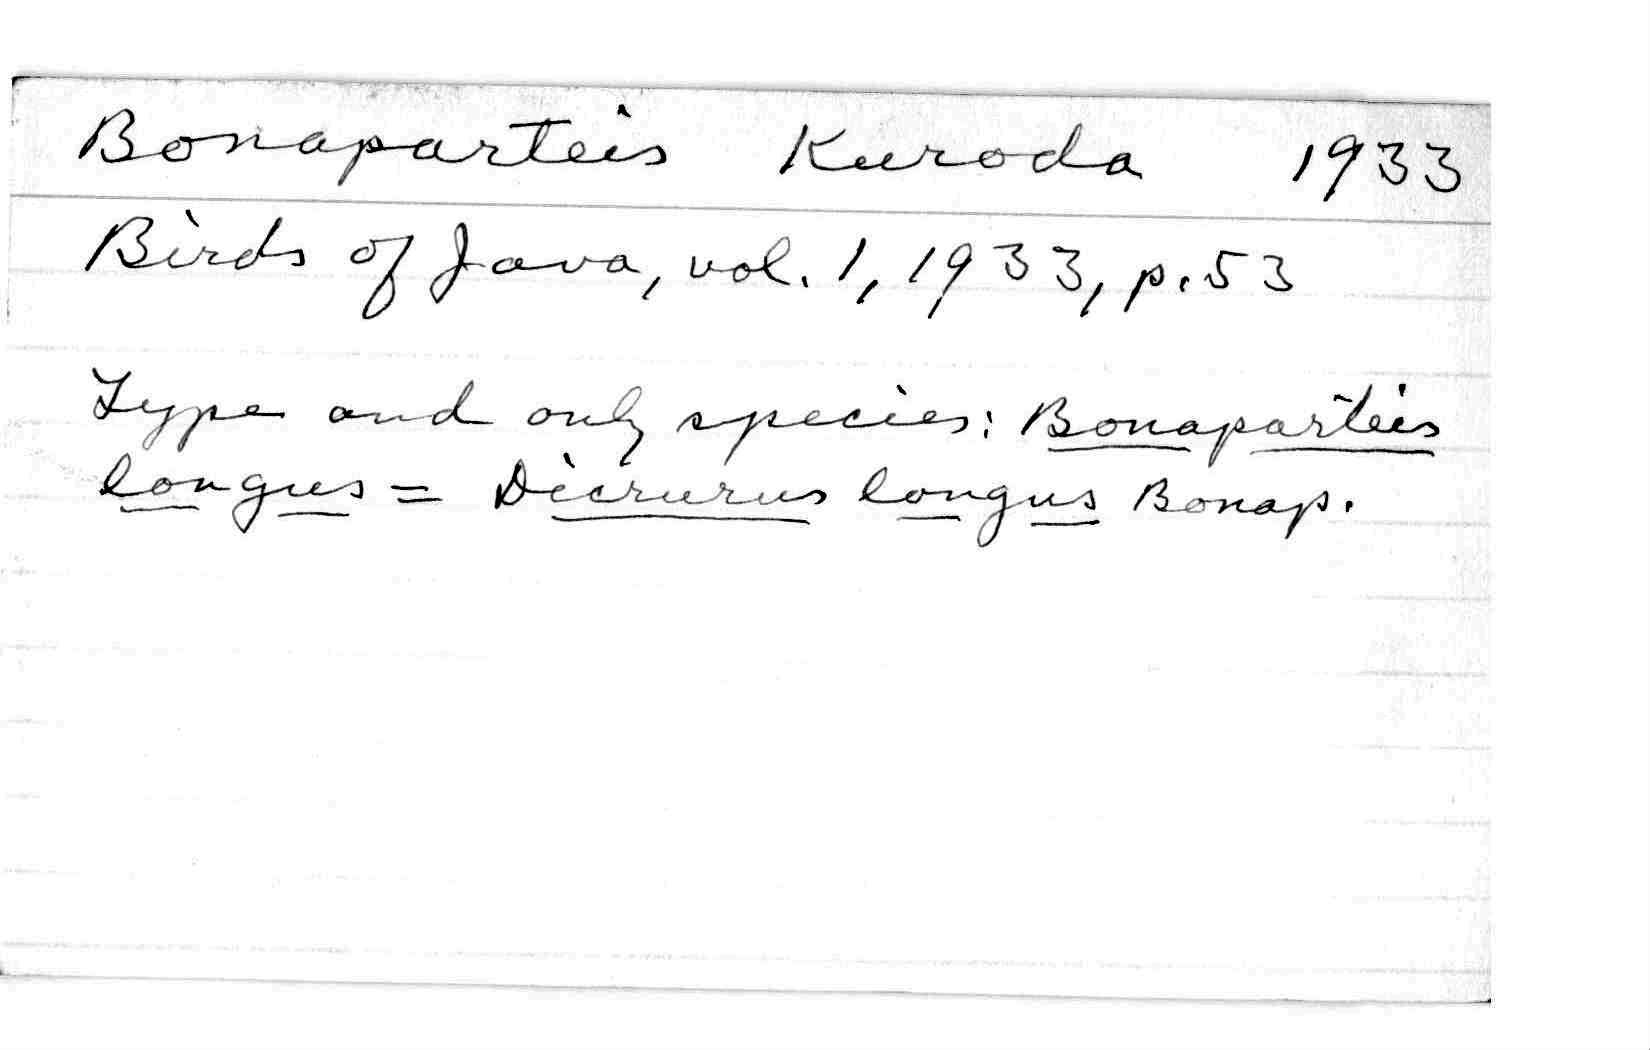 Bonaparteis Kuroda 1933
Birds of Java, vol. 1, 1933, p. 53
Type and only species: Bonaparteis
longus = Dicrurus longus Bonap.